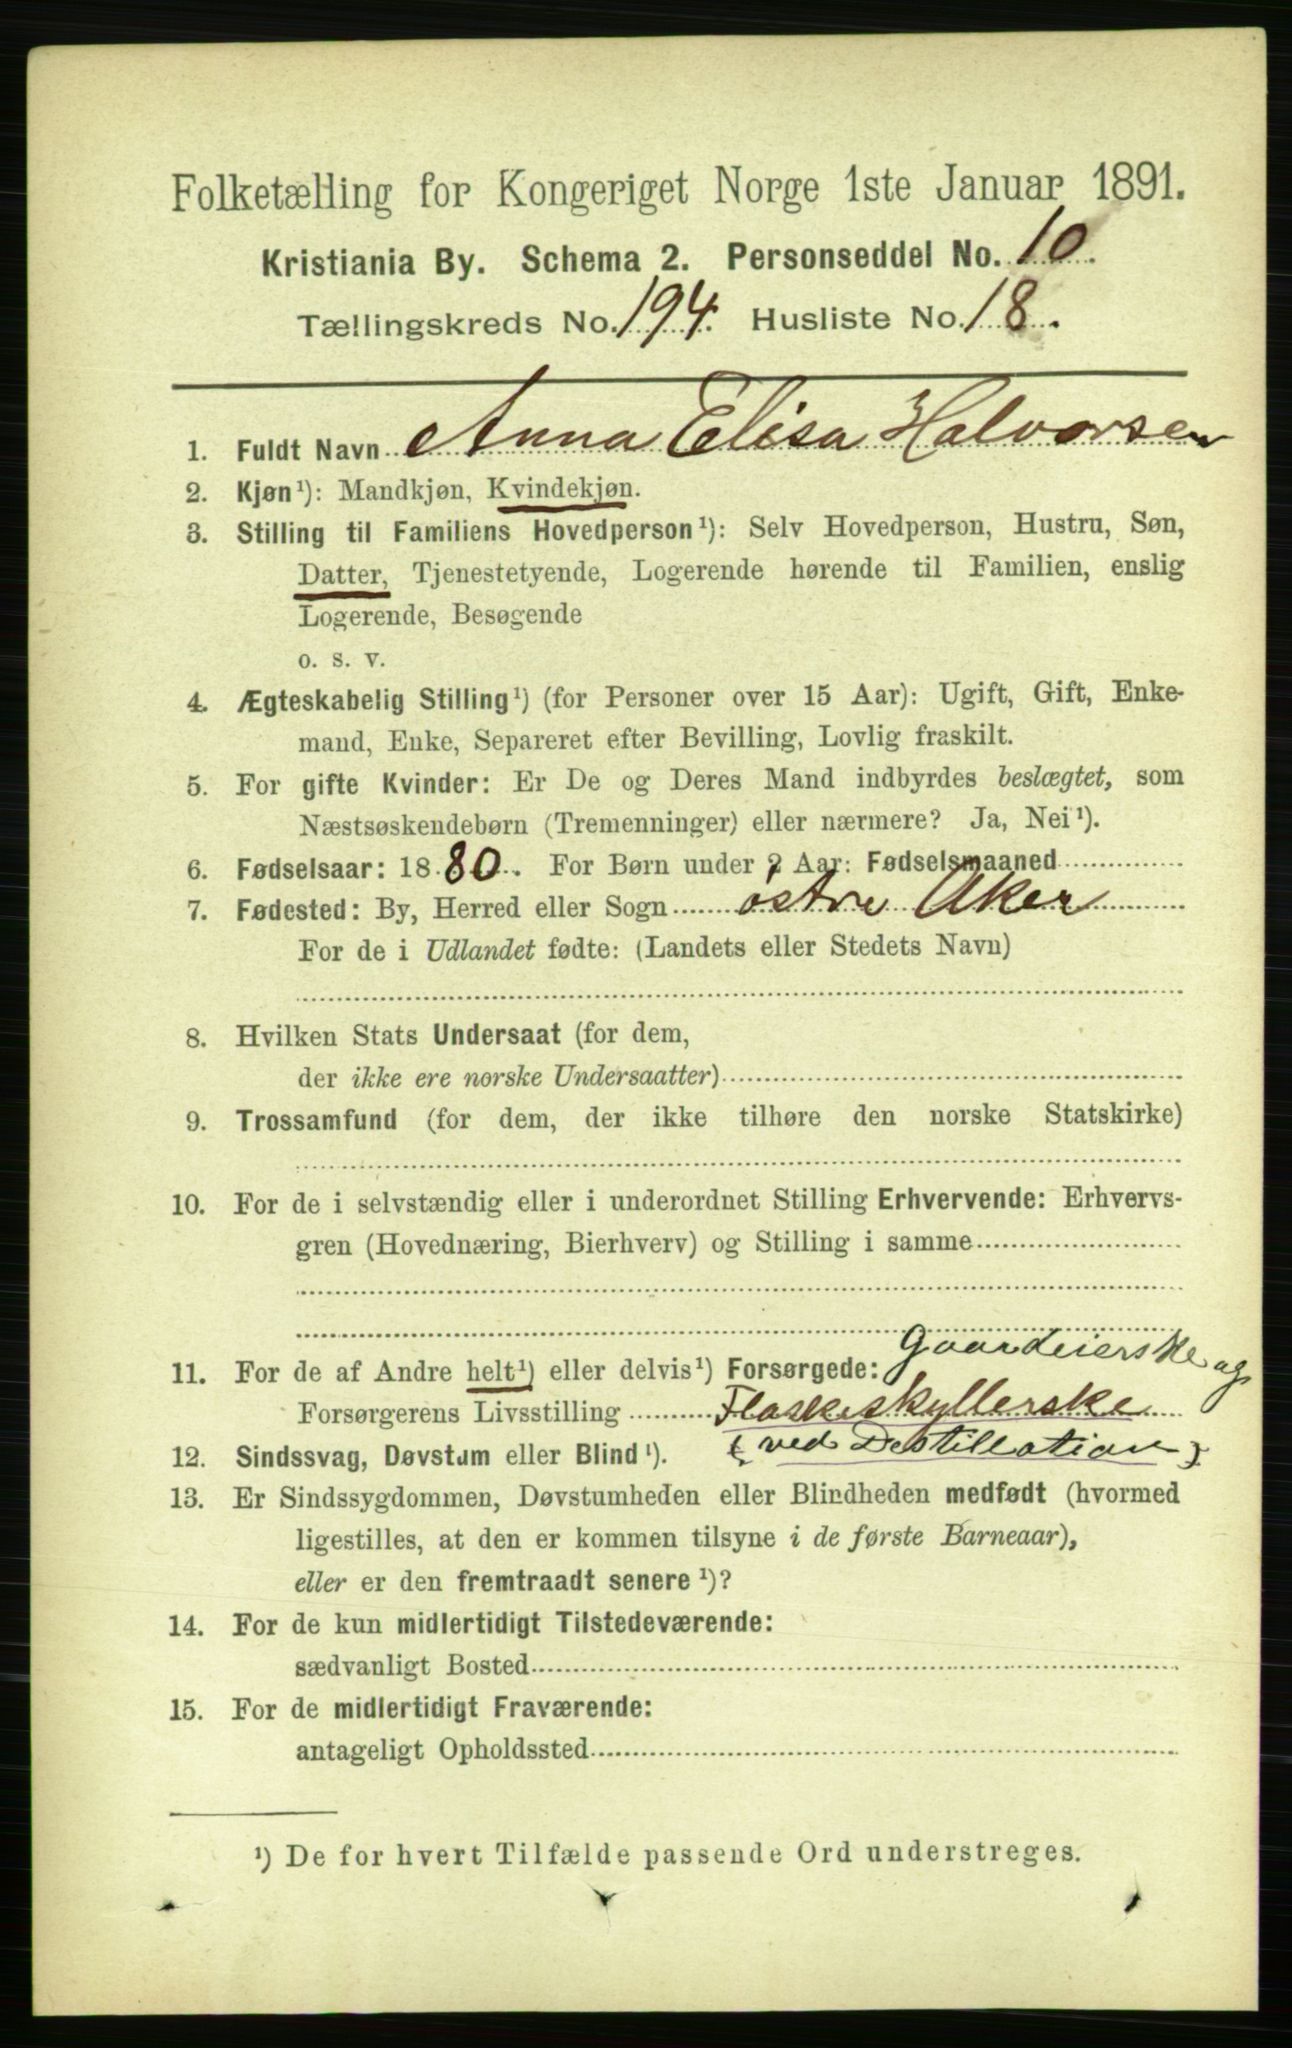 Folketælling for Kongeriget Norge 1ste Januar 1891.
Kristiania By. Schema 2. Personseddel No. 10.
Tællingskreds No. 194. Husliste No. 18.
1. Fuldt Navn Anna Elisa Halvorsen
2. Kjøn¹): Mandkjøn, Kvindekjøn.
3. Stilling til Familiens Hovedperson¹): Selv Hovedperson, Hustru, Søn,
Datter, Tjenestetyende, Logerende hørende til Familien, enslig
Logerende, Besøgende
o. s. v.
4. Ægteskabelig Stilling¹) (for Personer over 15 Aar): Ugift, Gift, Enke-
mand, Enke, Separeret efter Bevilling, Lovlig fraskilt.
5. For gifte Kvinder: Er De og Deres Mand indbyrdes beslægtet, som
Næstsøskendebørn (Tremenninger) eller nærmere? Ja, Nei¹).
6. Fødselsaar: 1880. For Børn under 2 Aar: Fødselsmaaned
7. Fødested: By, Herred eller Sogn østre Aker
For de i Udlandet fødte: (Landets eller Stedets Navn)
8. Hvilken Stats Undersaat (for dem,
der ikke ere norske Undersaatter)
9. Trossamfund (for dem, der ikke tilhøre den norske Statskirke)
10. For de i selvstændig eller i underordnet Stilling Erhvervende: Erhvervs-
gren (Hovednæring, Bierhverv) og Stilling i samme
11. For de af Andre helt¹) eller delvis¹) Forsørgede: Gaardeierske og
Forsørgerens Livsstilling Flaskeskyllerske
12. Sindssvag, Døvstum eller Blind¹). (ved Destillation)
13. Er Sindssygdommen, Døvstumheden eller Blindheden medfødt (hvormed
ligestilles, at den er kommen tilsyne i de første Barneaar),
eller er den fremtraadt senere¹)?
14. For de kun midlertidigt Tilstedeværende:
sædvanligt Bosted
15. For de midlertidigt Fraværende:
antageligt Opholdssted
¹) De for hvert Tilfælde passende Ord understreges.